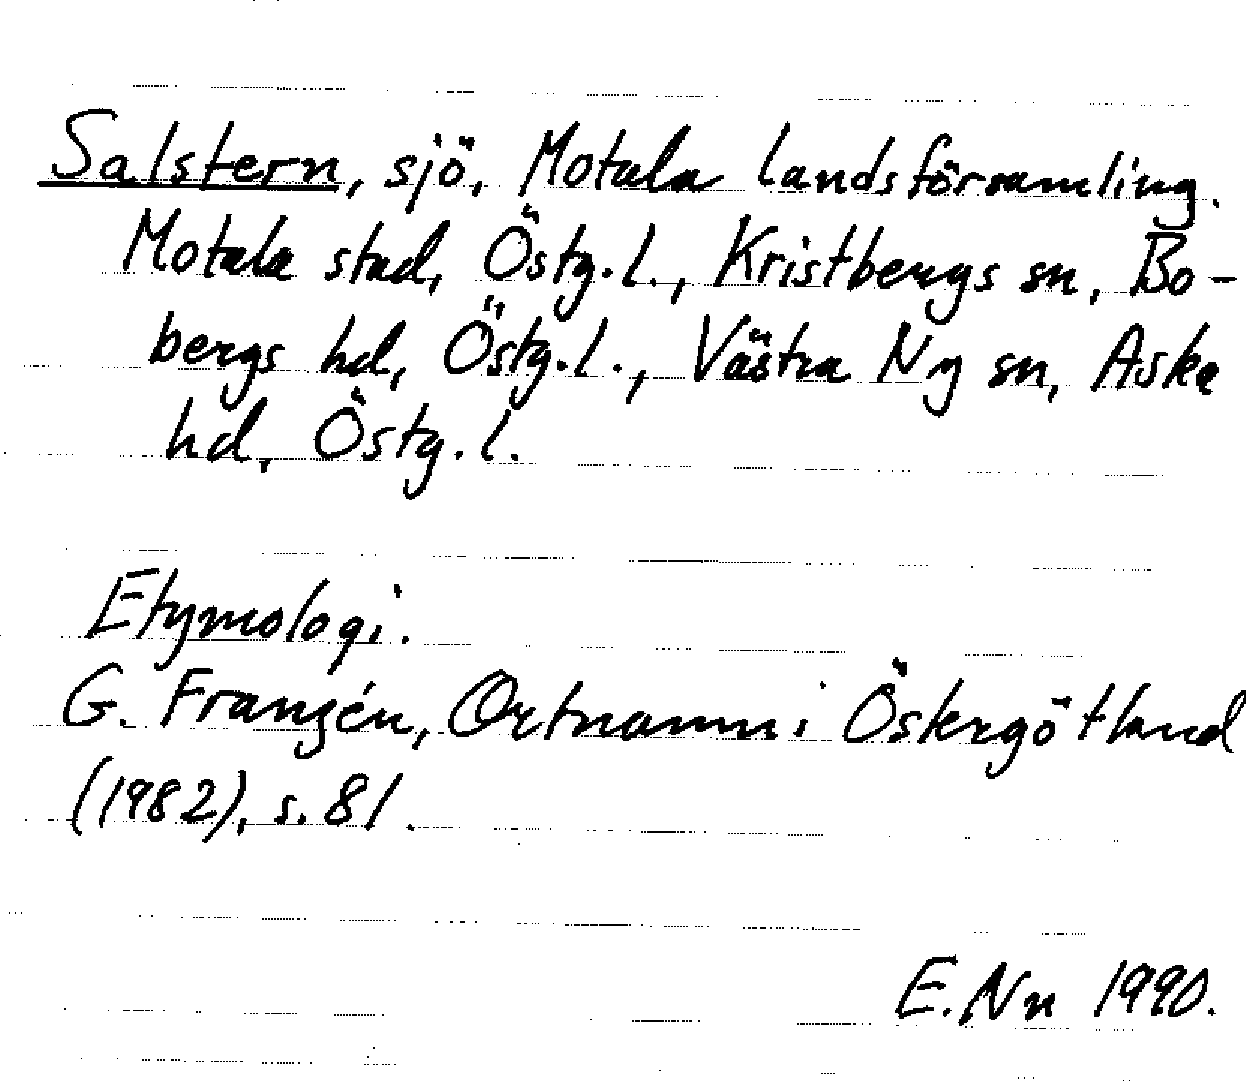 Salstern, sjö, Motala landsförsamling.
Motala stad, Östg.l., Kristbergs sn, Bo-
bergs hd, Östg.l., Västra Ny sn, Aska
hd, Östg.l.
Etymologi.
G. Franzén, Ortnamn i Östergötland
(1982), s. 81.
E.Nn 1990.